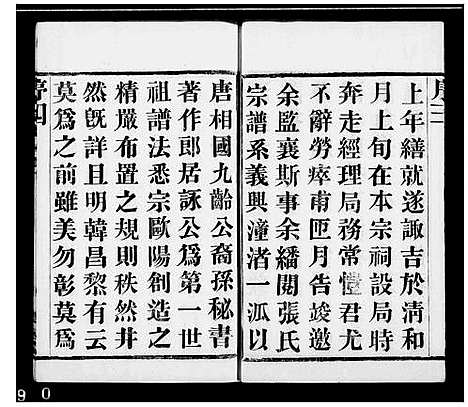 序三
上年繕就遂諏吉於淸和
月上旬在本宗祠設局時
奔走經理局務常愷君尤
不辭勞瘁甫匝月告竣邀
余監襄斯事余繙閱張氏
宗譜系義興潼渚一派以
唐相國九齡公裔孫秘書
著作郎居詠公爲第一世
祖譜法悉宗歐陽創造之
精嚴布置之規則秩然井
然旣詳且明韓昌黎有云
莫爲之前雖美勿彰莫爲
序四
9 0